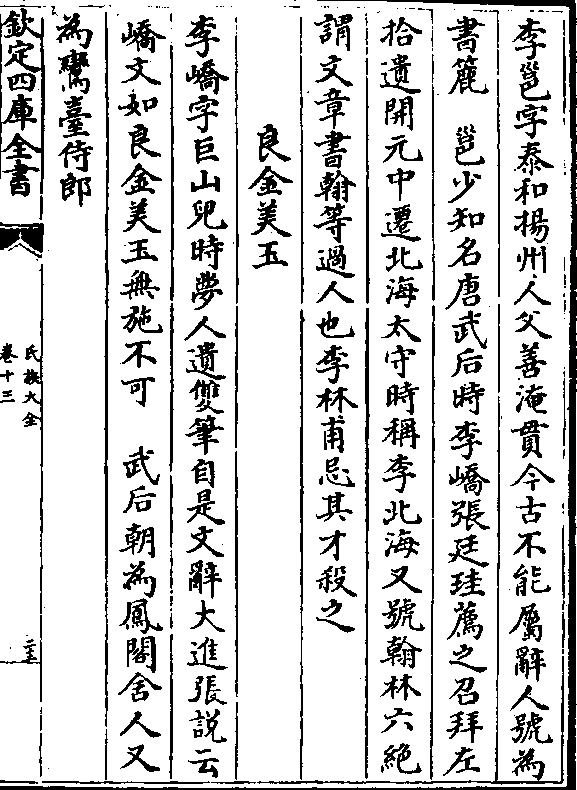 李邕字泰和揚州人父善淹貫今古不能屬辭人號為
書簏　邕少知名唐武后時李嶠張廷珪薦之召拜左
拾遺開元中遷北海太守時稱李北海又號翰林六絶
謂文章書翰等過人也李林甫忌其才殺之
良金美玉
李嶠字巨山兒時夢人遺雙筆自是文辭大進張説云
嶠文如良金美玉無施不可　武后朝為鳳閣舍人又
為鸞臺侍郎
欽定四庫全書
氏族大全
卷十三
二十五